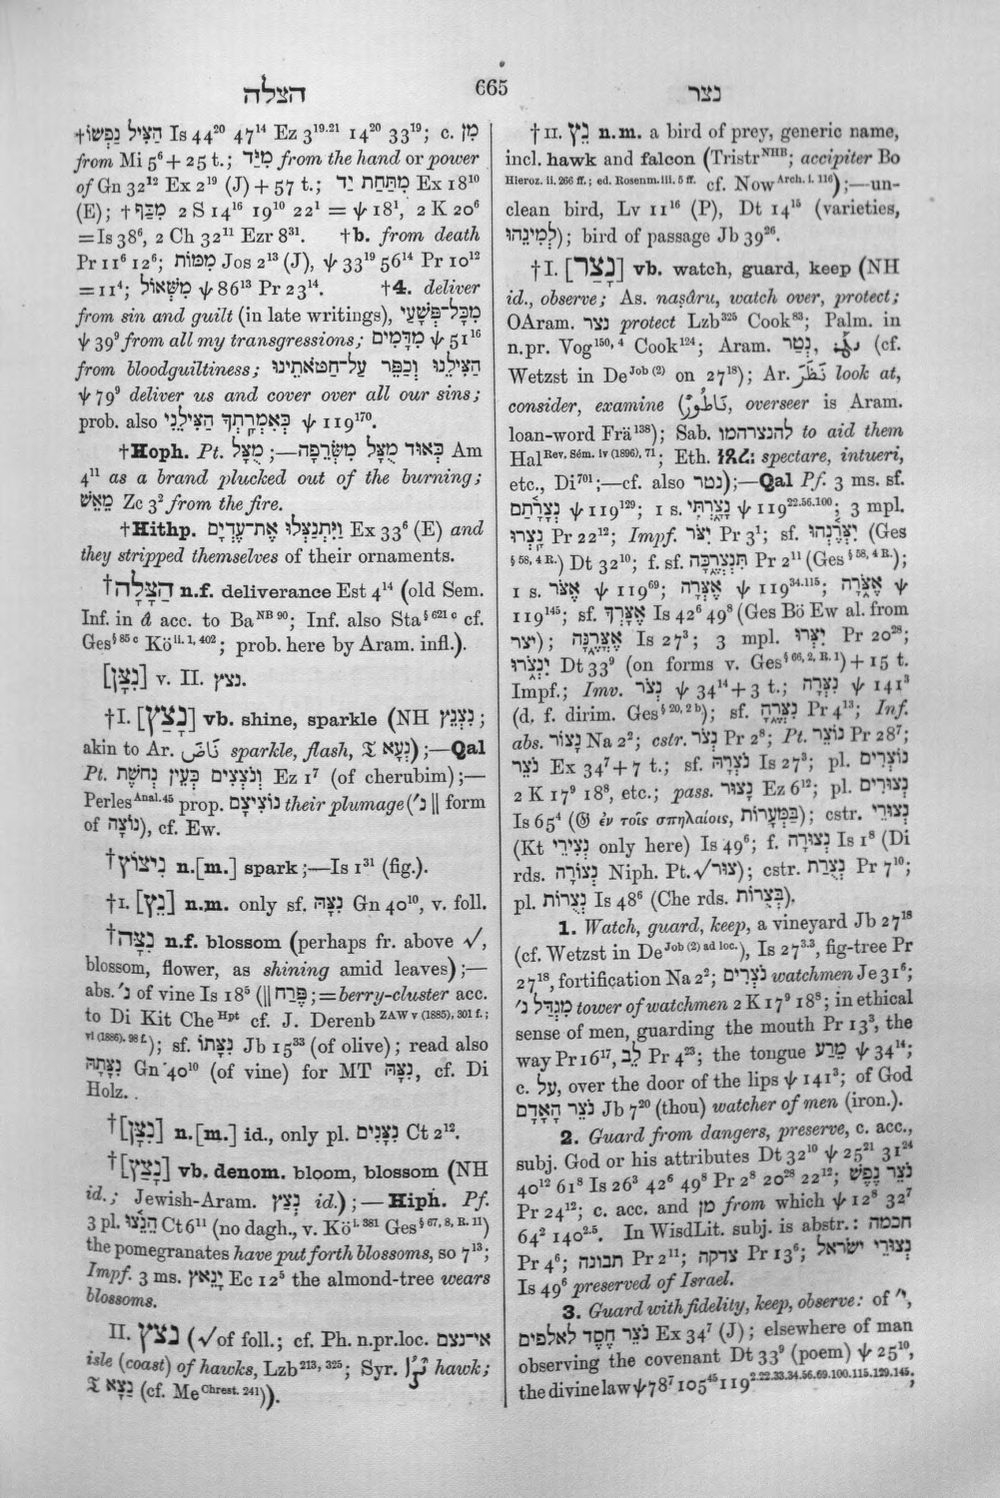 הצלה 665 נצר
†הִצִּיל נַפְשׁוֹ Is 44²⁰ 47¹⁴ Ez 3¹⁹·²¹ 14²⁰ 33¹⁹; c. מִן
from Mi 5⁶ + 25 t.; מִיַּד from the hand or power
of Gn 32¹² Ex 2¹⁹ (J) + 57 t.; מִתַּחַת יַד Ex 18¹⁰
(E); †מִכַּף 2 S 14¹⁶ 19¹⁰ 22¹ = ψ 18¹, 2 K 20⁶
= Is 38⁶, 2 Ch 32¹¹ Ezr 8³¹. †b. from death
Pr 11⁶ 12⁶; מִמּוֹת Jos 2¹³ (J), ψ 33¹⁹ 56¹⁴ Pr 10¹²
= 11⁴; מִשְּׁאוֹל ψ 86¹³ Pr 23¹⁴. †4. deliver
from sin and guilt (in late writings), מִכָּל־פְּשָׁעַי
ψ 39⁹ from all my transgressions; מִדָּמִים ψ 51¹⁶
from bloodguiltiness; הַצִּילֵנוּ וְכַפֵּר עַל־חַטֹּאתֵינוּ
ψ 79⁹ deliver us and cover over all our sins;
prob. also כְּאִמְרָתְךָ הַצִּילֵנִי ψ 119¹⁷⁰.
†Hoph. Pt. מֻצָּל;—כְּאוּד מֻצָּל מִשְּׂרֵפָה Am
4¹¹ as a brand plucked out of the burning;
מֵאֵשׁ Zc 3² from the fire.
†Hithp. וַיִּתְנַצְּלוּ אֶת־עֶדְיָם Ex 33⁶ (E) and
they stripped themselves of their ornaments.
†הַצָּלָה n.f. deliverance Est 4¹⁴ (old Sem.
Inf. in â acc. to Ba NB 90; Inf. also Sta § 621 c cf.
Ges § 85 c Kö ii. 1, 402; prob. here by Aram. infl.).
[נִצָּן] v. II. נצץ.
†I. [נָצַץ] vb. shine, sparkle (NH נִצְנֵץ;
akin to Ar. نَاضَ sparkle, flash, 𝔗 נְעָא);—Qal
Pt. וְנֹצְצִים כְּעֵין נְחשֶׁת Ez 1⁷ (of cherubim);—
Perles Anal. 45 prop. נוֹצִיצָם their plumage (נ׳ ‖ form
of נוֹצָה), cf. Ew.
†נִיצוֹץ n.[m.] spark;—Is 1³¹ (fig.).
†I. [נֵץ] n.m. only sf. נִצָּהּ Gn 40¹⁰, v. foll.
†נִצָּה n.f. blossom (perhaps fr. above √,
blossom, flower, as shining amid leaves);—
abs. נ׳ of vine Is 18⁵ (‖ פֶּרַח; = berry-cluster acc.
to Di Kit Che Hpt cf. J. Derenb ZAW v (1885), 301 f.;
vi (1886), 98 f.); sf. נִצָּתוֹ Jb 15³³ (of olive); read also
נִצָּתָהּ Gn 40¹⁰ (of vine) for MT נִצָּהּ, cf. Di
Holz.
†[נִצָּן] n.[m.] id., only pl. נִצָּנִים Ct 2¹².
†[נָצַץ] vb. denom. bloom, blossom (NH
id.; Jewish-Aram. נְצַץ id.);—Hiph. Pf.
3 pl. הֵנֵצוּ Ct 6¹¹ (no dagh., v. Kö i. 381 Ges § 67, 8, R. 11)
the pomegranates have put forth blossoms, so 7¹³;
Impf. 3 ms. יָנֵאץ Ec 12⁵ the almond-tree wears
blossoms.
II. נצץ (√ of foll.; cf. Ph. n.pr.loc. אי־נצם
isle (coast) of hawks, Lzb 213, 325; Syr. hawk;
𝔗 נַצָּא (cf. Me Chrest. 241)).
†II. נֵץ n.m. a bird of prey, generic name,
incl. hawk and falcon (Tristr NHB; accipiter Bo
Hieroz. ii. 266 ff.; ed. Rosenm. iii. 5 ff. cf. Now Arch. i. 116);—un-
clean bird, Lv 11¹⁶ (P), Dt 14¹⁵ (varieties,
לְמִינֵהוּ); bird of passage Jb 39²⁶.
†I. [נָצַר] vb. watch, guard, keep (NH
id., observe; As. naṣâru, watch over, protect;
OAram. נצר protect Lzb 325 Cook 83; Palm. in
n.pr. Vog 150, 4 Cook 124; Aram. נְטַר, (cf.
Wetzst in De Job (2) on 27¹⁸); Ar. نَظَرَ look at,
consider, examine (نَاطُورٌ, overseer is Aram.
loan-word Frä 138); Sab. להנצרהמו to aid them
Hal Rev. Sém. iv (1896), 71; Eth. spectare, intueri,
etc., Di 701;—cf. also נטר);—Qal Pf. 3 ms. sf.
נְצָרָתַם ψ 119¹²⁹; 1 s. נָצַרְתִּי ψ 119²²·⁵⁶·¹⁰⁰; 3 mpl.
נָצְרוּ Pr 22¹²; Impf. יִצֹּר Pr 3¹; sf. יִצְּרֶנְהוּ (Ges
§ 58, 4 R.) Dt 32¹⁰; f. sf. תִּנְצְרֶכָּה Pr 2¹¹ (Ges § 58, 4 R.);
1 s. אֶצֹּר ψ 119⁶⁹; אֶצְּרָה ψ 119³⁴·¹¹⁵; אֶצֳּרָה ψ
119¹⁴⁵; sf. אֶצָּרְךָ Is 42⁶ 49⁸ (Ges Bö Ew al. from
יצר); אֶצֳּרֶנָּה Is 27³; 3 mpl. יִצְּרוּ Pr 20²⁸;
יִנְצֹרוּ Dt 33⁹ (on forms v. Ges § 66, 2, R. 1) + 15 t.
Impf.; Imv. נְצֹר ψ 34¹⁴ + 3 t.; נִצְּרָה ψ 141³
(d. f. dirim. Ges § 20, 2 b); sf. נִצְּרֶהָ Pr 4¹³; Inf.
abs. נָצוֹר Na 2²; cstr. נְצֹר Pr 2⁸; Pt. נוֹצֵר Pr 28⁷;
נֹצֵר Ex 34⁷ + 7 t.; sf. נֹצְרָהּ Is 27³; pl. נוֹצְרִים
2 K 17⁹ 18⁸, etc.; pass. נָצוּר Ez 6¹²; pl. נְצוּרִים
Is 65⁴ (𝔊 ἐν τοῖς σπηλαίοις, בַּמְּעָרוֹת); cstr. נְצוּרֵי
(Kt נְצִירֵי only here) Is 49⁶; f. נְצוּרָה Is 1⁸ (Di
rds. נְצוֹרָה Niph. Pt. √צור); cstr. נְצֻרַת Pr 7¹⁰;
pl. נְצֻרוֹת Is 48⁶ (Che rds. בְּצֻרוֹת).
1. Watch, guard, keep, a vineyard Jb 27¹⁸
(cf. Wetzst in De Job (2) ad loc.), Is 27³·³, fig-tree Pr
27¹⁸, fortification Na 2²; נֹצְרִים watchmen Je 31⁶;
מִגְדַּל נ׳ tower of watchmen 2 K 17⁹ 18⁸; in ethical
sense of men, guarding the mouth Pr 13³, the
way Pr 16¹⁷, לֵב Pr 4²³; the tongue מֵרָע ψ 34¹⁴;
c. עַל, over the door of the lips ψ 141³; of God
נֹצֵר הָאָדָם Jb 7²⁰ (thou) watcher of men (iron.).
2. Guard from dangers, preserve, c. acc.,
subj. God or his attributes Dt 32¹⁰ ψ 25²¹ 31²⁴
40¹² 61⁸ Is 26³ 42⁶ 49⁸ Pr 2⁸ 20²⁸ 22¹²; נֹצֵר נֶפֶשׁ
Pr 24¹²; c. acc. and מִן from which ψ 12⁸ 32⁷
64² 140²·⁵. In WisdLit. subj. is abstr.: חכמה
Pr 4⁶; תבונה Pr 2¹¹; צדקה Pr 13⁶; נְצוּרֵי ישׂראל
Is 49⁶ preserved of Israel.
3. Guard with fidelity, keep, observe: of י״,
נֹצֵר חֶסֶד לאלפים Ex 34⁷ (J); elsewhere of man
observing the covenant Dt 33⁹ (poem) ψ 25¹⁰,
the divine law ψ 78⁷ 105⁴⁵ 119²·²²·³³·³⁴·⁵⁶·⁶⁹·¹⁰⁰·¹¹⁵·¹²⁹·¹⁴⁵;